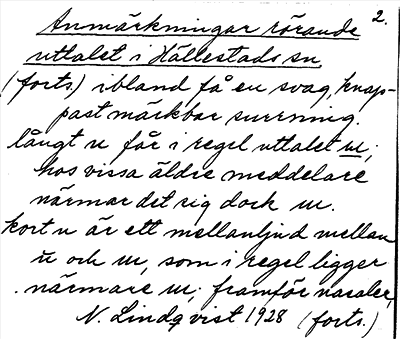 2.
Anmärkningar rörande
uttalet i Hällestads sn.
(forts.) ibland få en svag, knap-
past märkbar surrning.
långt u får i regel uttalet u;
hos vissa äldre meddelare
närmar det sig dock u.
kort u är ett mellanljud mellan
u och u, som i regel ligger
närmare u; framför nasaler,
N. Lindqvist 1928 (forts.)